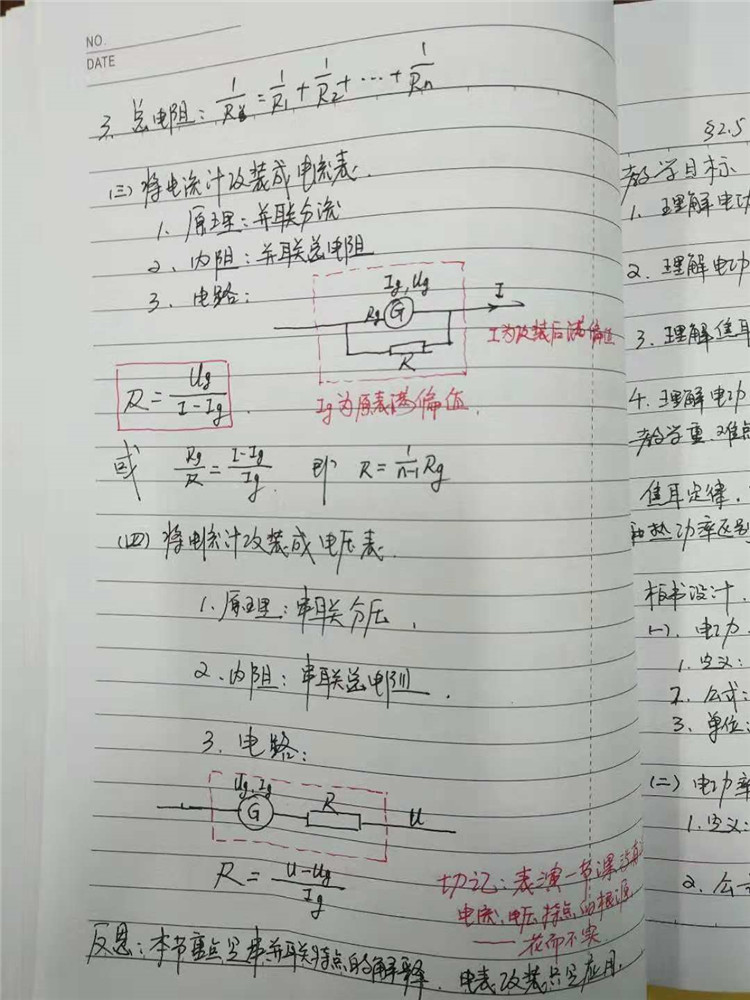 NO.
DATE
3. 总电阻：1/R总 = 1/R1 + 1/R2 + … + 1/Rn
(三) 将电流计改装成电流表.
1. 原理：并联分流
2. 内阻：并联总电阻
3. 电路：
Ig, Ug
Rg G
I
R
I为改装后满偏值
Ig为原表满偏值.
R = Ug/(I-Ig).
或 Rg/R = (I-Ig)/Ig. 即 R = 1/(n-1) Rg
(四) 将电流计改装成电压表.
1. 原理：串联分压.
2. 内阻：串联总电阻.
3. 电路：
Ug, Ig
G R U
R = (U-Ug)/Ig
切记：表演一节课
电流、电压特点的根源
——花而不实
反思：本节重点是串并联特点的解释，电表改装只是应用.
§2.5
教学目标
1. 理解电功
2. 理解电功
3. 理解焦耳
4. 理解电功
教学重、难点
焦耳定律，
和热功率区别
板书设计.
(一). 电功.
1. 定义：
2. 公式：
3. 单位：
(二) 电功率
1. 定义：
2. 公式